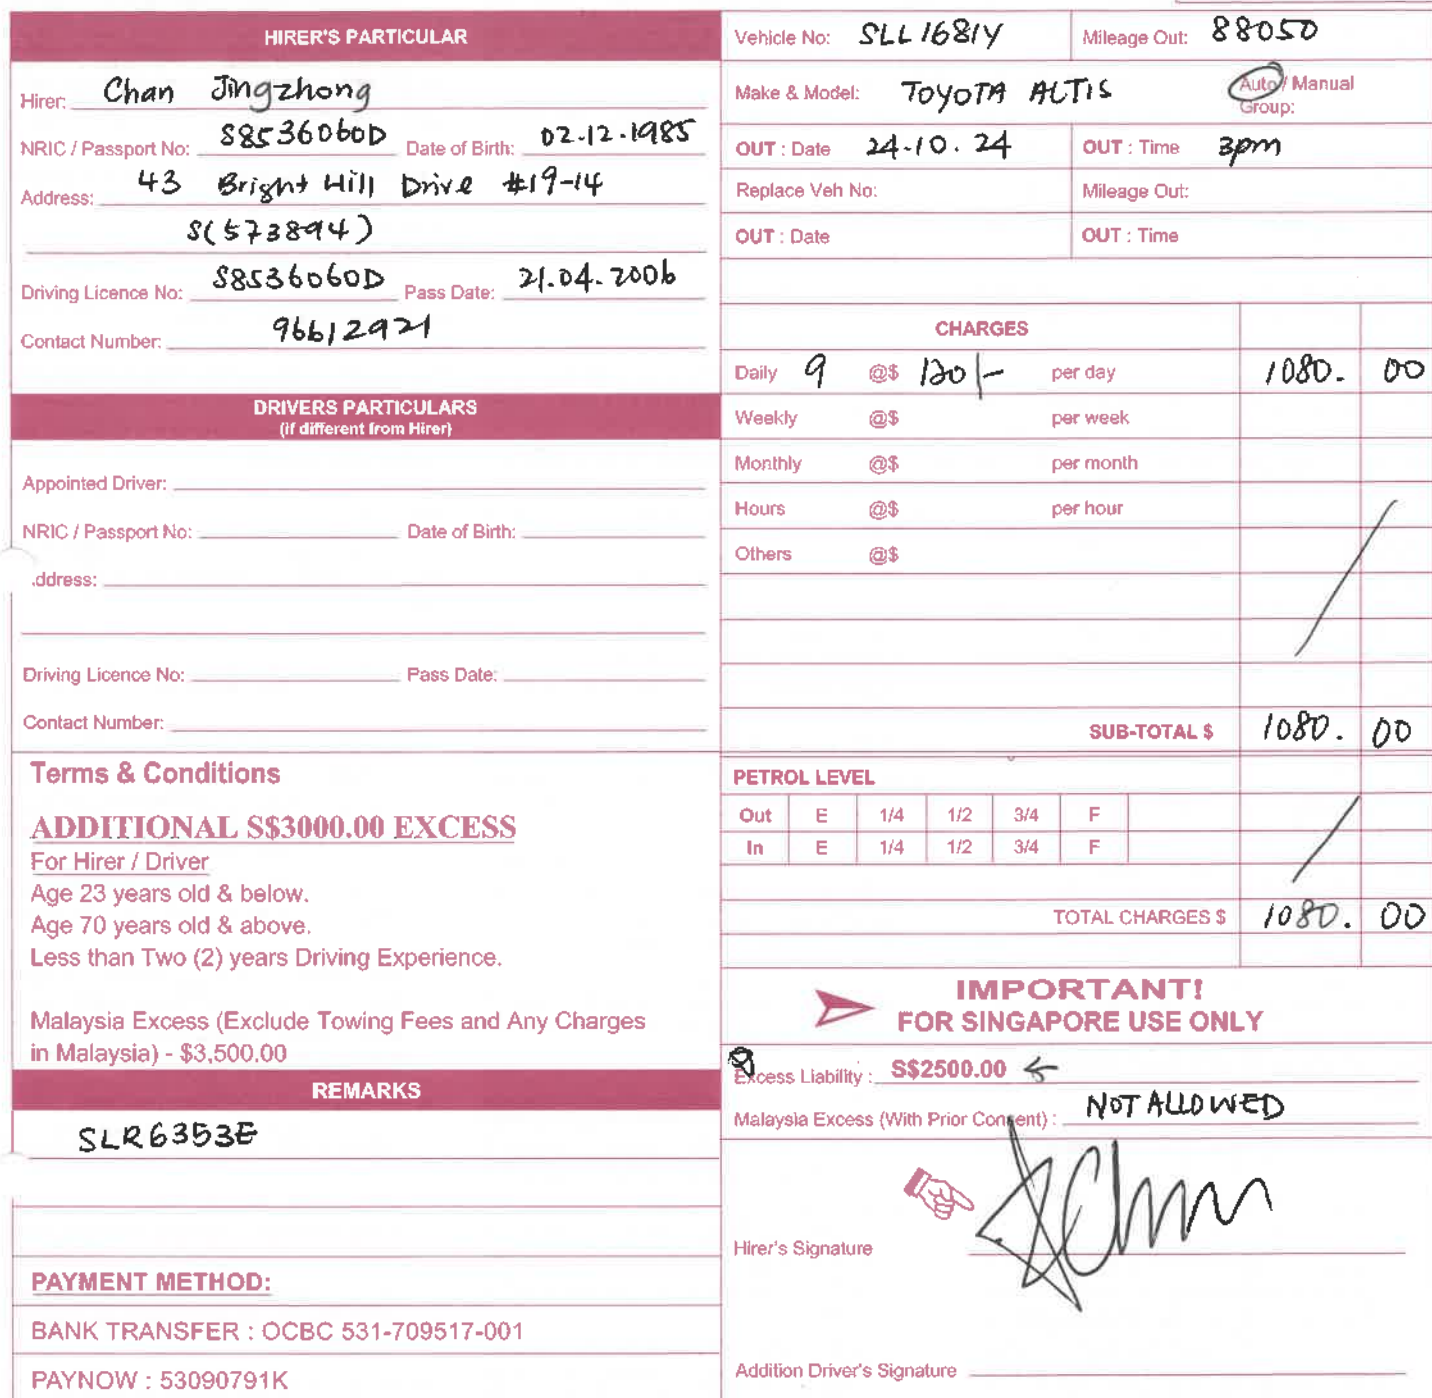 HIRER'S PARTICULAR
Hirer: Chan Jingzhong
NRIC / Passport No: S8536060D Date of Birth: 02.12.1985
Address: 43 Bright Hill Drive #19-14
S(573894)
Driving Licence No: S8536060D Pass Date: 21.04.2006
Contact Number: 96612921
DRIVERS PARTICULARS
(if different from Hirer)
Appointed Driver:
NRIC / Passport No: Date of Birth:
ddress:
Driving Licence No: Pass Date:
Contact Number:
Terms & Conditions
ADDITIONAL S$3000.00 EXCESS
For Hirer / Driver
Age 23 years old & below.
Age 70 years old & above.
Less than Two (2) years Driving Experience.
Malaysia Excess (Exclude Towing Fees and Any Charges
in Malaysia) - $3,500.00
REMARKS
SLR6353E
PAYMENT METHOD:
BANK TRANSFER : OCBC 531-709517-001
PAYNOW : 53090791K
Vehicle No: SLL1681Y Mileage Out: 88050
Make & Model: TOYOTA ALTIS Auto / Manual
Group:
OUT : Date 24.10.24 OUT : Time 3pm
Replace Veh No: Mileage Out:
OUT : Date OUT : Time
CHARGES
Daily 9 @$ 120/- per day 1080. 00
Weekly @$ per week
Monthly @$ per month
Hours @$ per hour
Others @$
SUB-TOTAL $ 1080. 00
PETROL LEVEL
Out E 1/4 1/2 3/4 F
In E 1/4 1/2 3/4 F
TOTAL CHARGES $ 1080. 00
IMPORTANT!
FOR SINGAPORE USE ONLY
Excess Liability : S$2500.00
Malaysia Excess (With Prior Consent) : NOT ALLOWED
Hirer's Signature
Addition Driver's Signature